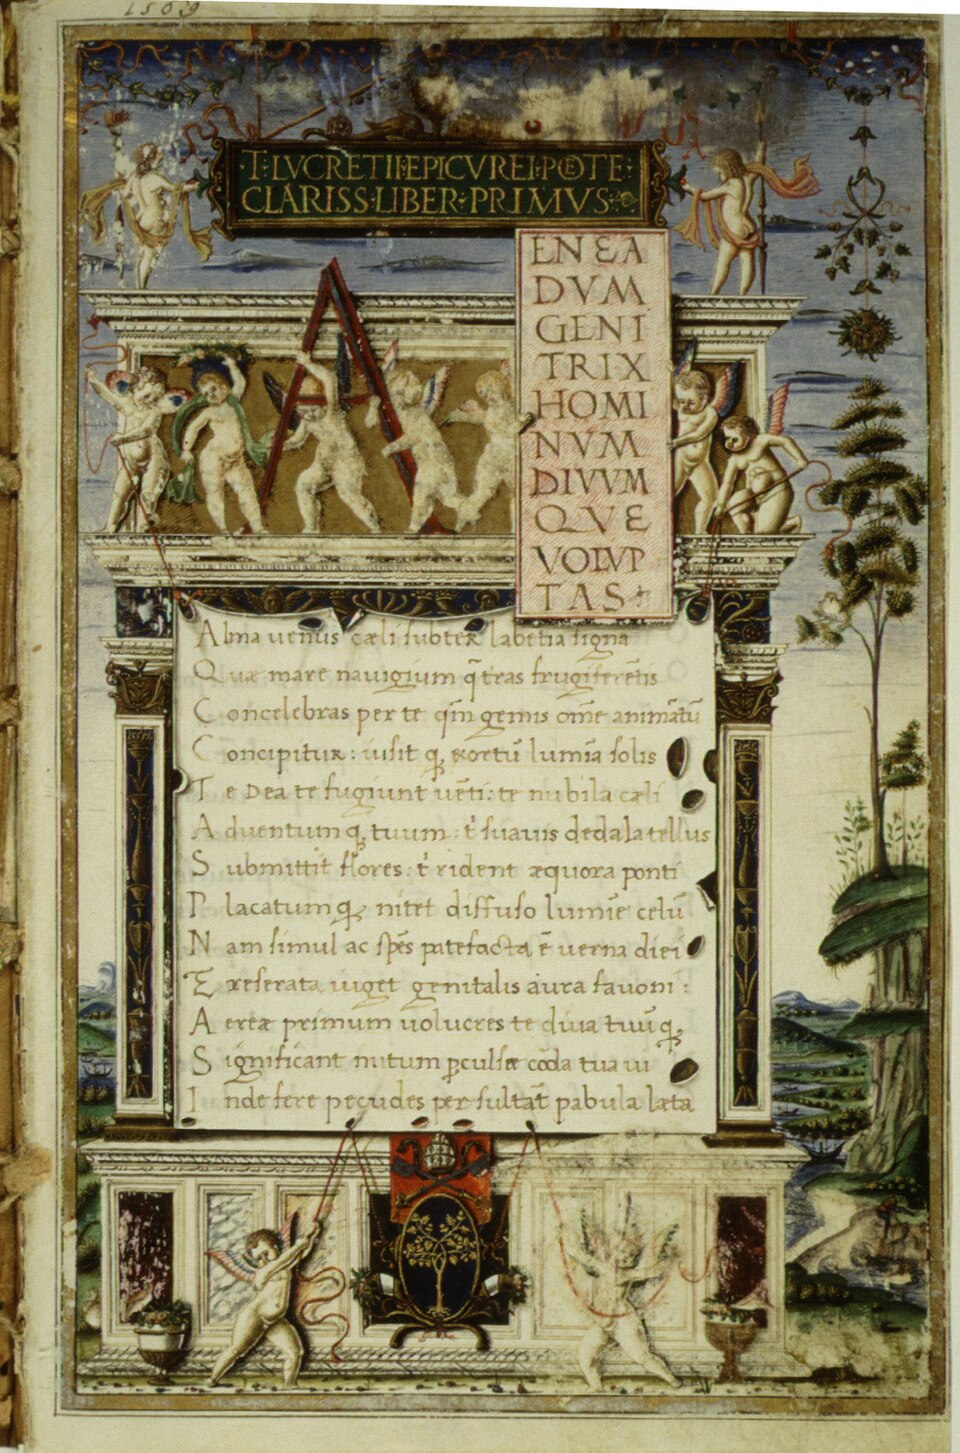 1569
·T·LVCRETII·EPICVREI·POETE·
CLARISS·LIBER·PRIMVS·
A
ENEA
DVM
GENI
TRIX
HOMI
NVM
DIVVM
QVE
VOLVP
TAS
Alma uenus cæli subter labētia signa
Quæ mare nauigium q̄ tras frugiferētis
Concelebras per te qm̄ genus om̄e animātū
Concipitur: uisit q; exortū lumīa solis
Te Dea te fugiunt uēti: te nubila cæli
Aduentumq; tuum: t' suauis dedala tellus
Submittit flores: t' rident æquora ponti
Placatumq; nitet diffuso lumīe celū
Nam simul ac spēs patefacta ē uerna diei
Et reserata uiget genitalis aura fauoni:
Aereæ primum uolucres te diua tuūq;
Significant initum ꝑculsæ corda tua ui
Inde fere pecudes per sultāt pabula læta